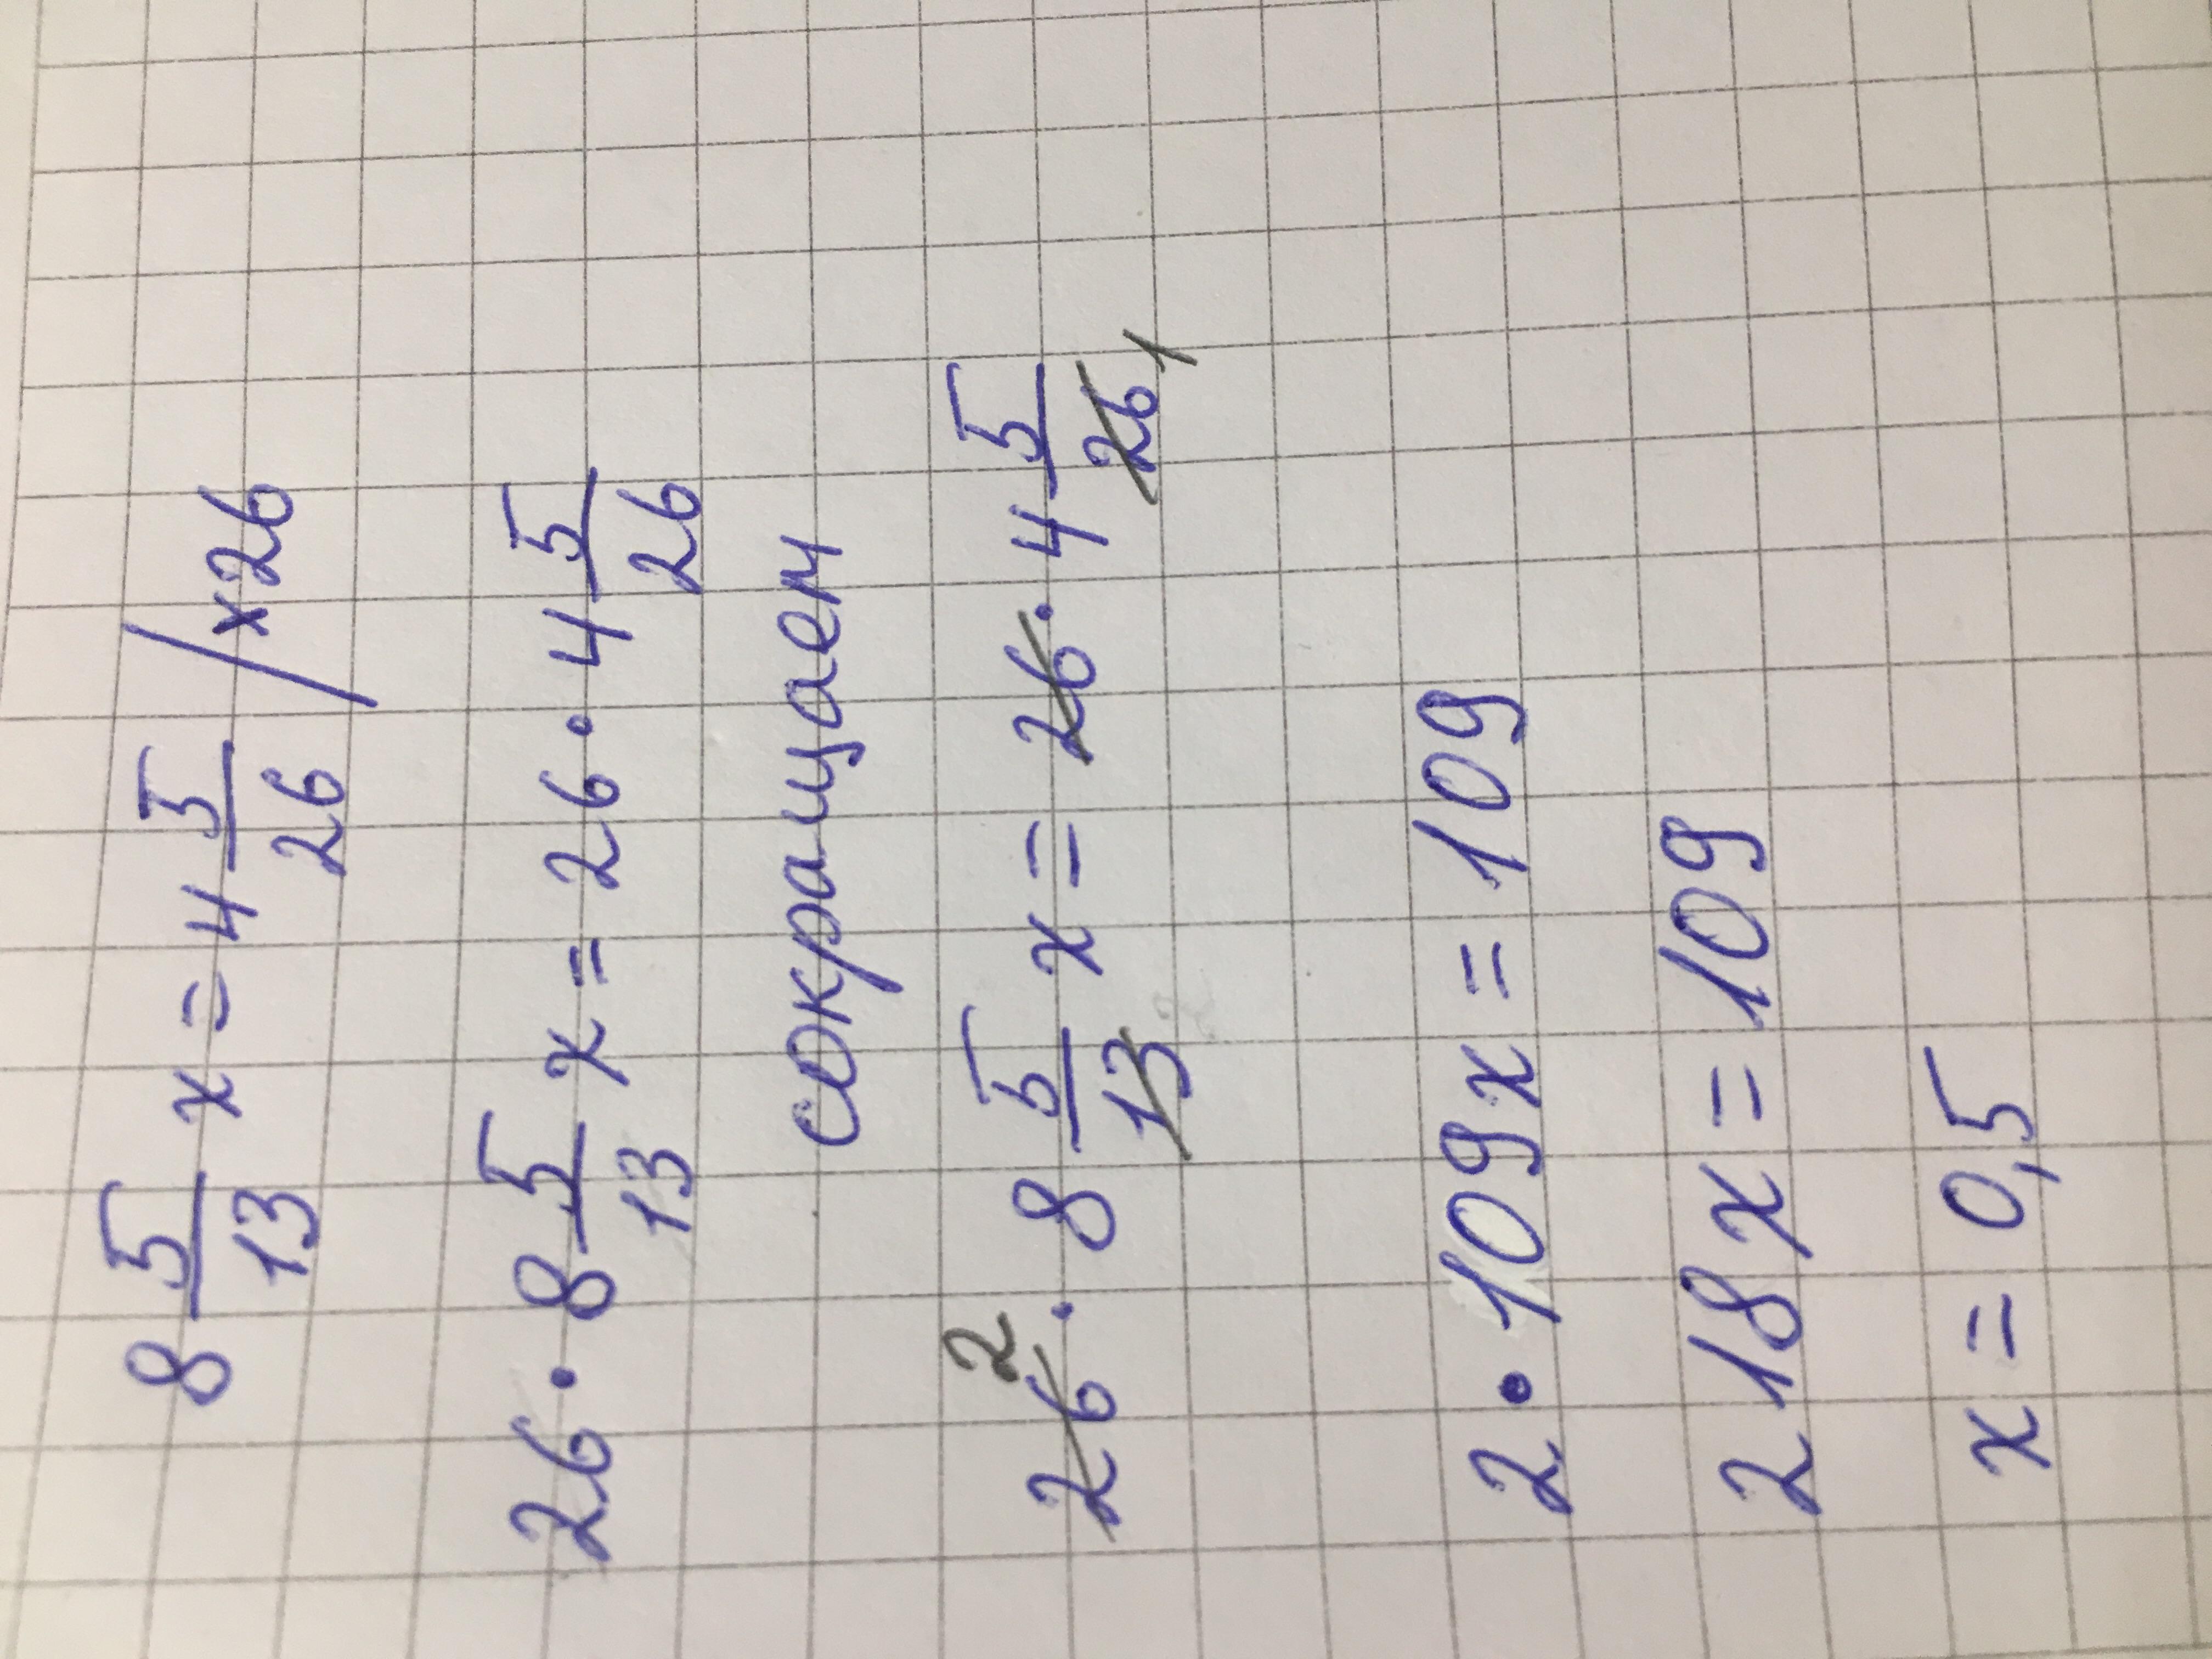 8 5/13 x = 4 5/26 / x26
26 · 8 5/13 x = 26 · 4 5/26
сокращаем
26 2 · 8 5/13 x = 26 · 4 5/26 1
2 · 109x = 109
218x = 109
x = 0,5